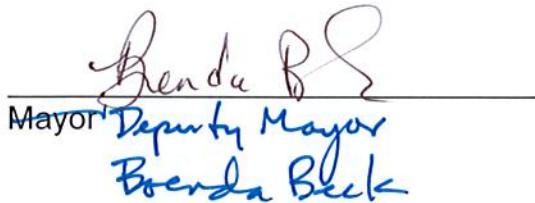 Brenda B
Mayor Deputy Mayor
Brenda Beck